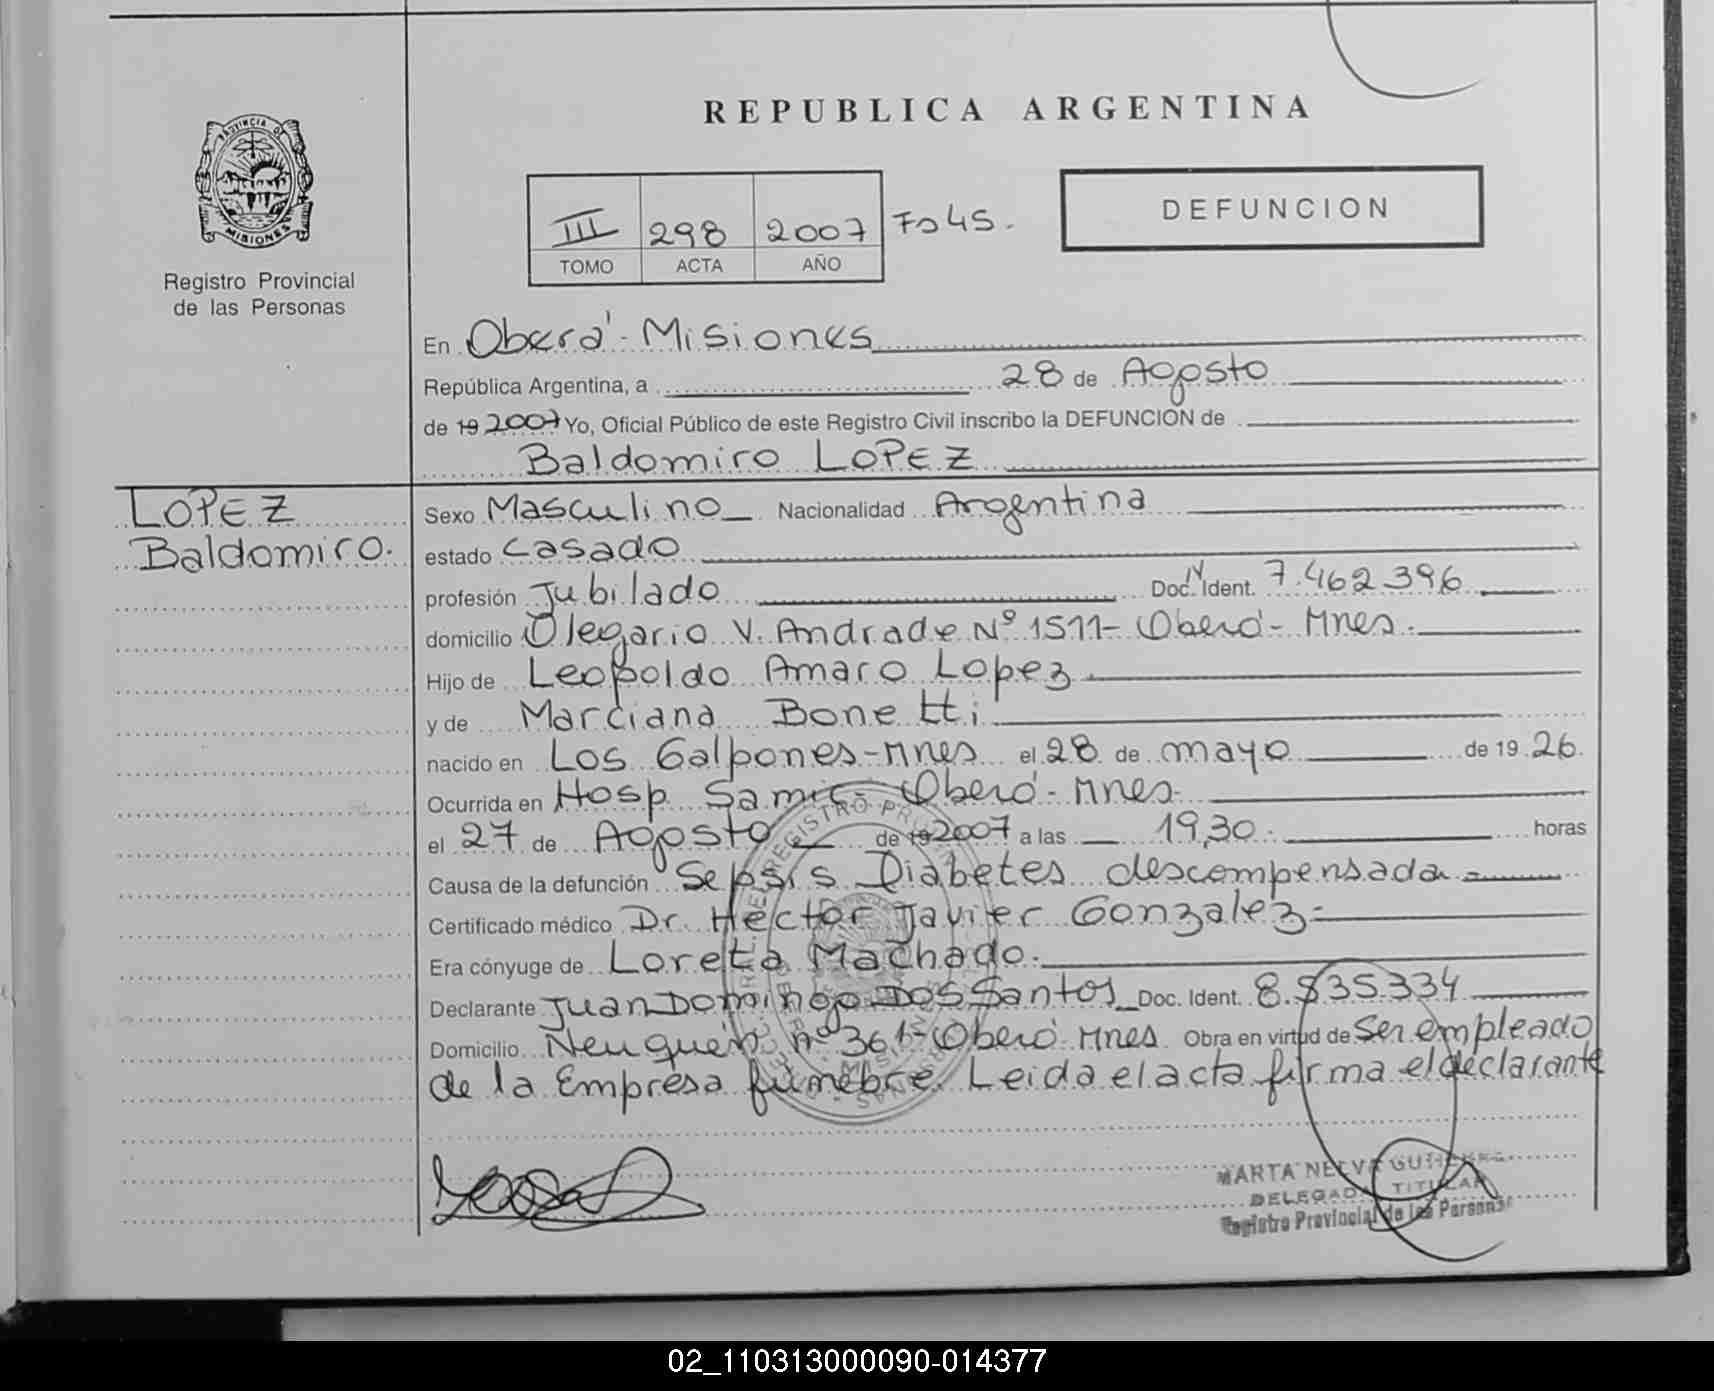 REPUBLICA ARGENTINA
PROVINCIA DE
MISIONES
Registro Provincial
de las Personas
III 298 2007 Fo 45.
TOMO ACTA AÑO
DEFUNCION
En Oberá - Misiones
República Argentina, a 28 de Agosto
de 19 2007 Yo, Oficial Público de este Registro Civil inscribo la DEFUNCION de
Baldomiro LOPEZ
LOPEZ
Baldomiro.
Sexo Masculino Nacionalidad Argentina
estado casado
profesión Jubilado Doc. Ident. 7.462.396
domicilio Olegario V. Andrade Nº 1511- Oberá- Mnes.
Hijo de Leopoldo Amaro Lopez
y de Marciana Bonetti
nacido en Los Galpones-Mnes el 28 de mayo de 19 26.
Ocurrida en Hosp. Samic- Oberá- Mnes-
el 27 de Agosto de 19 2007 a las 19,30. horas
Causa de la defunción Sepsis Diabetes descompensada
Certificado médico Dr. Hector Javier Gonzalez-
Era cónyuge de Loreta Machado.
Declarante Juan Domingo Dos Santos Doc. Ident. 8.535.334
Domicilio Neuquén nº 361- Oberá Mnes Obra en virtud de Ser empleado
de la Empresa fúnebre. Leida el acta firma el declarante
MARTA NELVA
DELEGADA TITULAR
Registro Provincial de las Personas
02_110313000090-014377